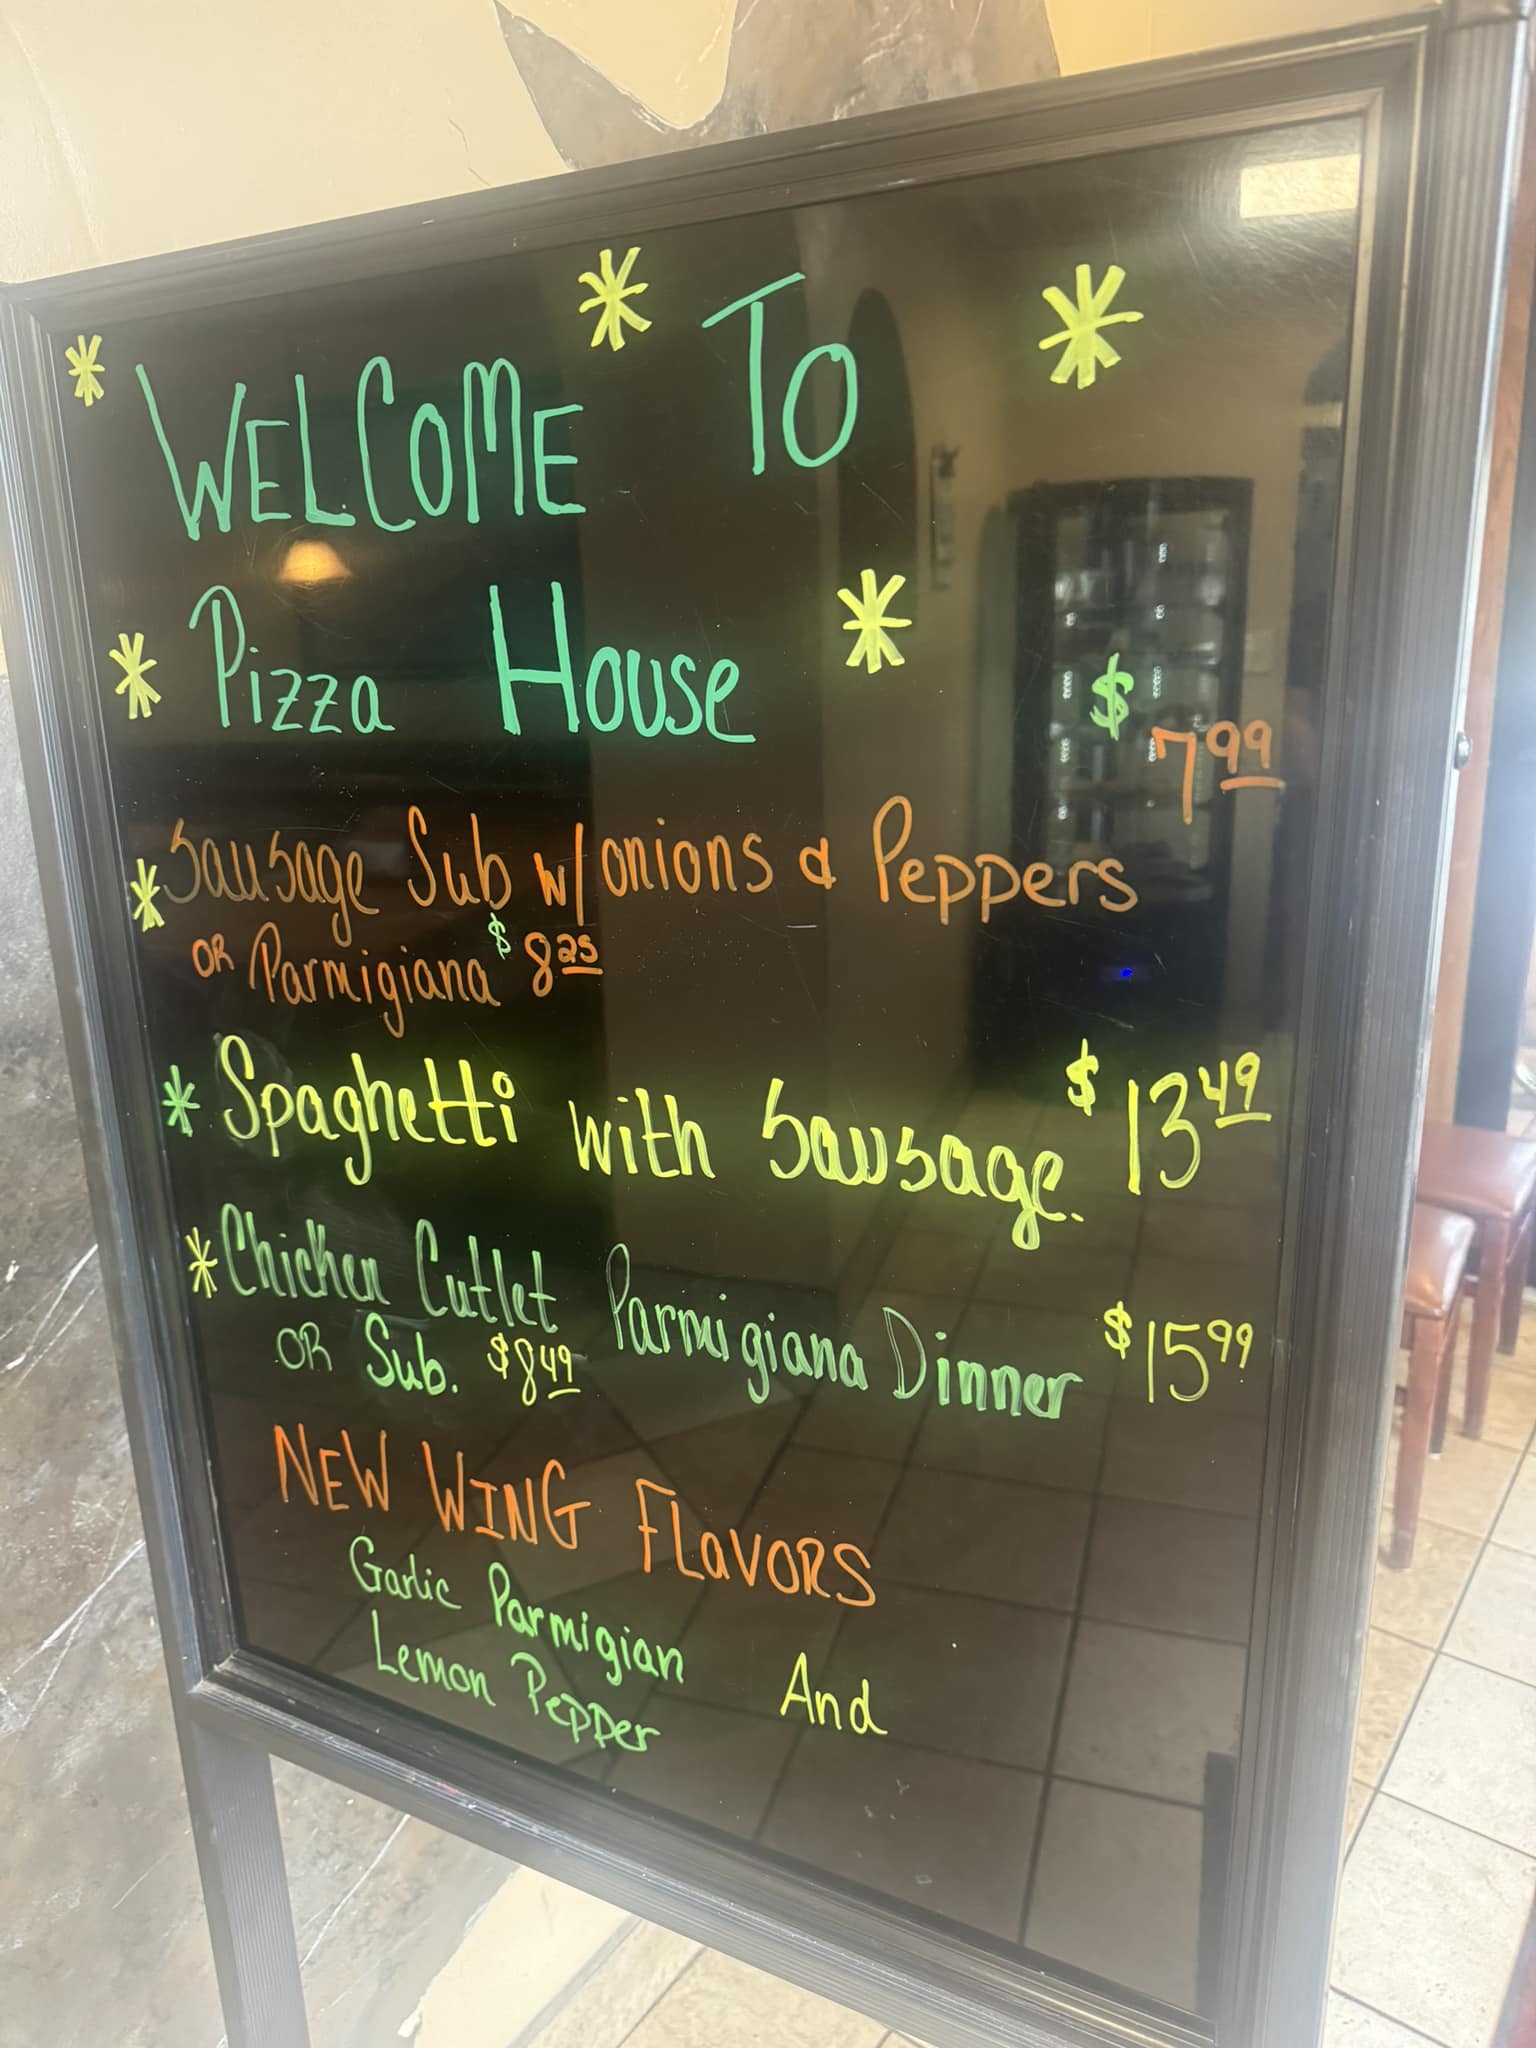 WELCOME To
Pizza House
$ 7 99
Sausage Sub w/ onions & Peppers
OR Parmigiana $ 8 25
Spaghetti with Sausage. $ 13 49
Chicken Cutlet Parmigiana Dinner $ 15 99
OR Sub. $ 8 49
NEW WING FLavORS
Garlic Parmigian And
Lemon Pepper